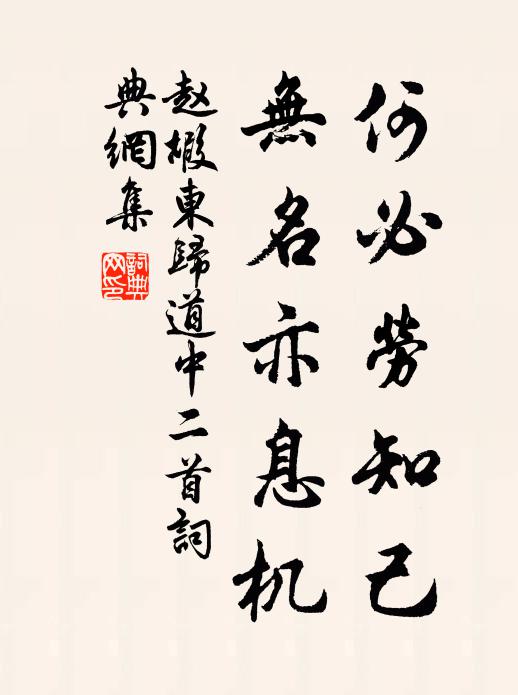 何必勞知己
無名亦息机
赵嘏東歸道中二首詞
典網集
詞典网印